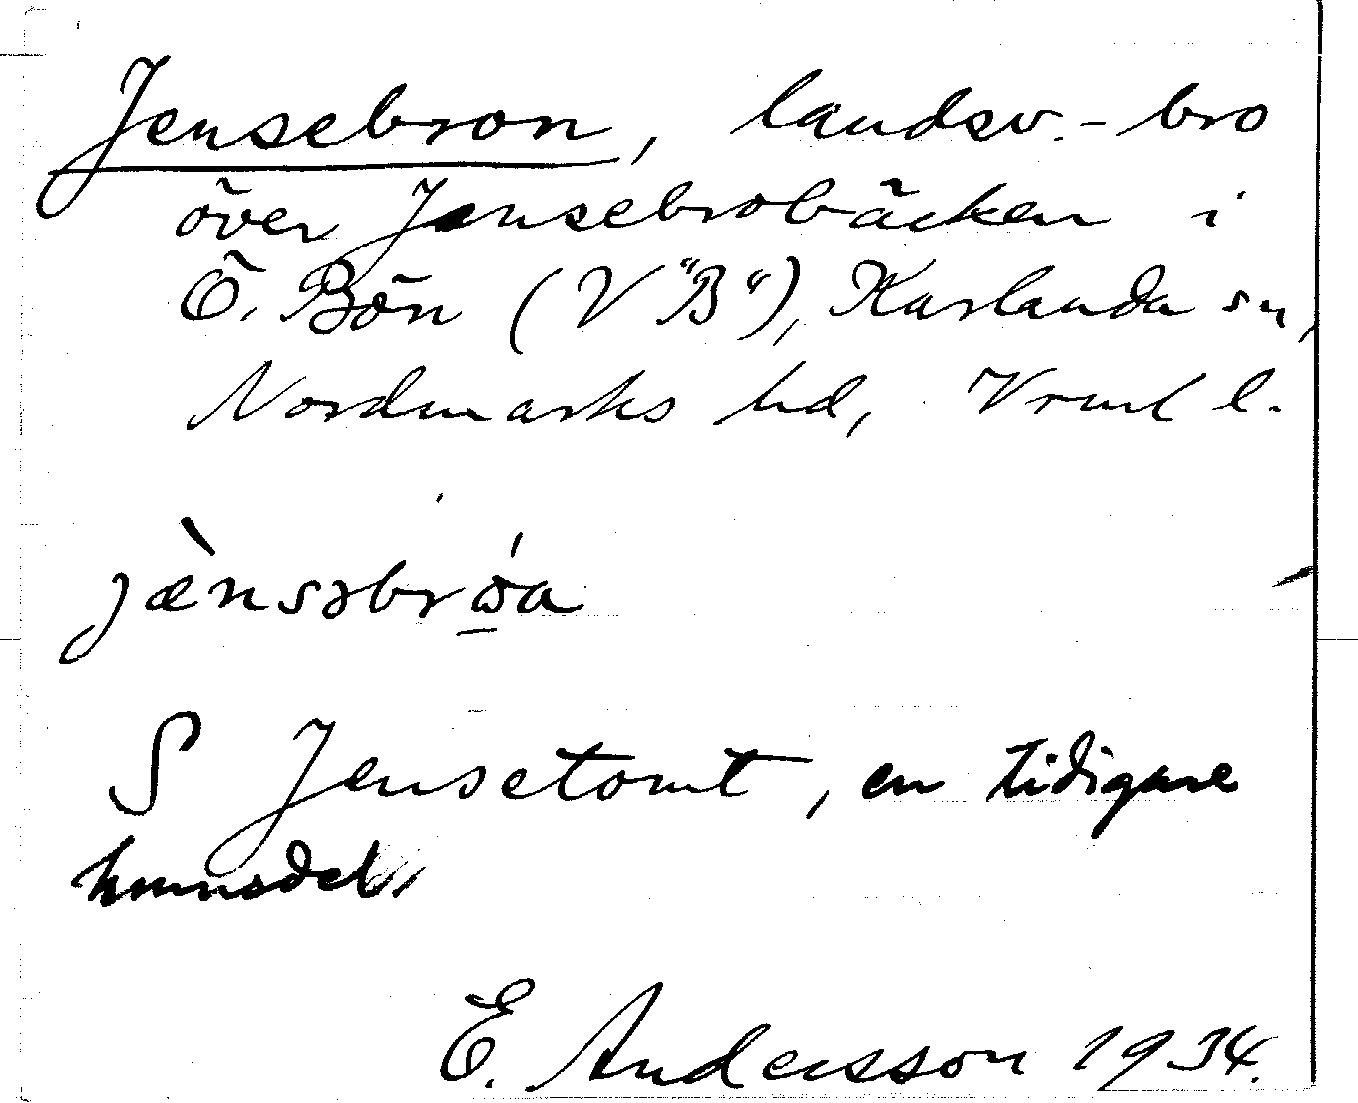 Jensebron, landsv.-bro
över Jensebrobäcken i
Ö. Bön (V "B"), Karlanda sn,
Nordmarks hd, Vrml l.
jæ̀nsəbrώ̱a
S Jensetomt, en tidigare
hmnsdel
E. Andersson 1934.